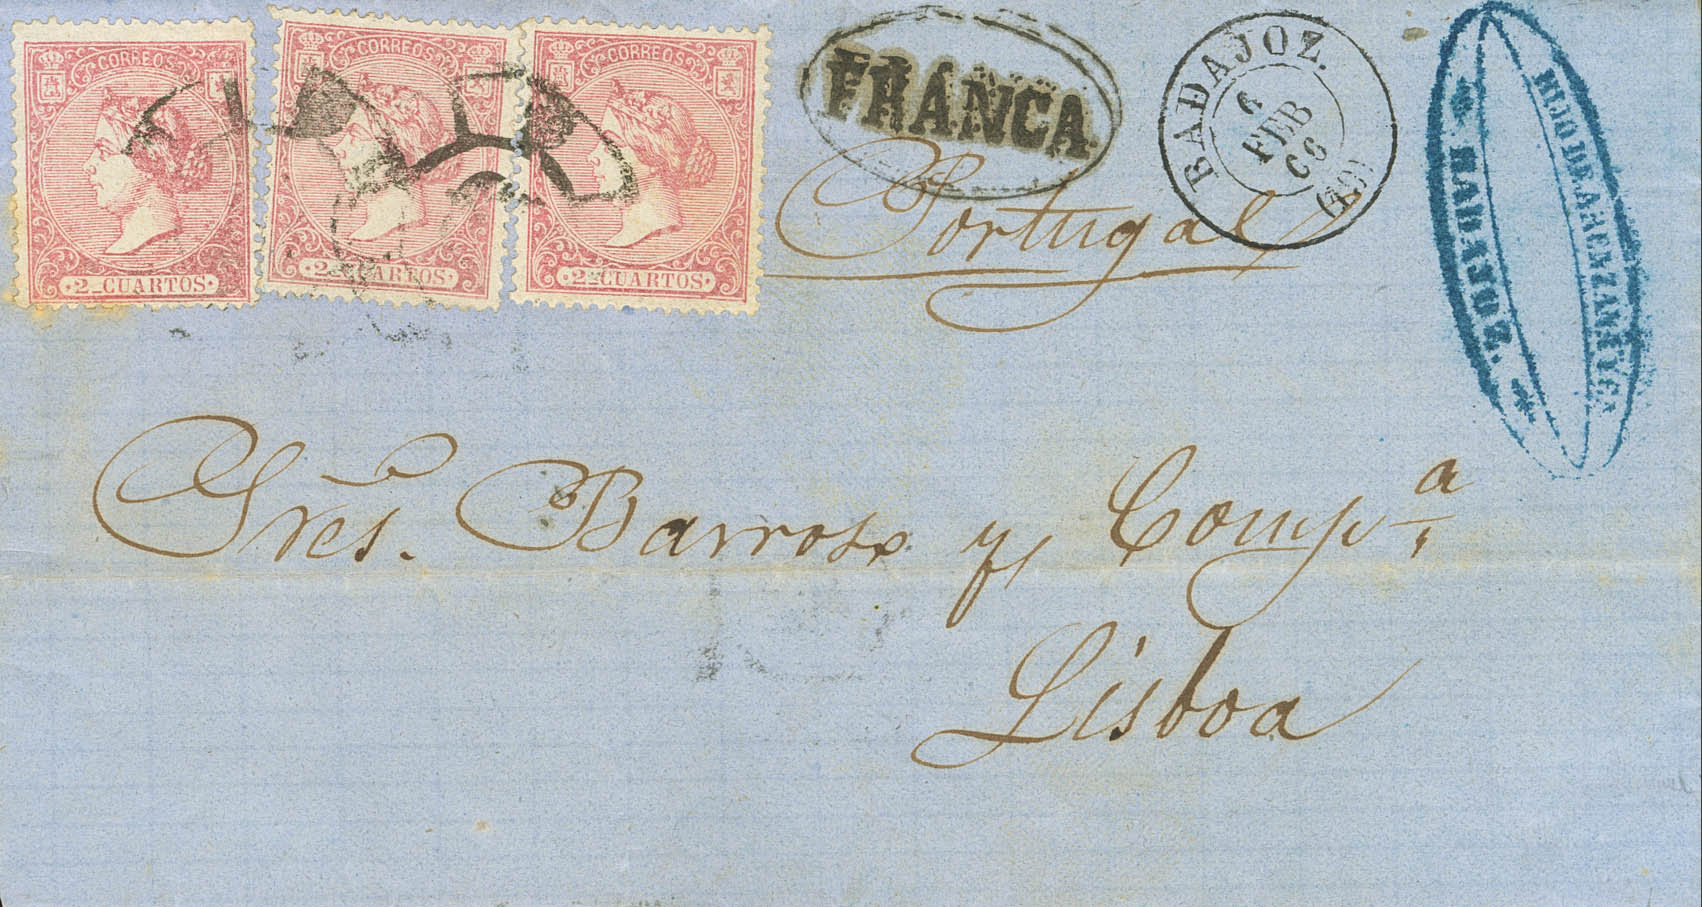 CORREOS
2 CUARTOS
CORREOS
2 ARTOS
CORREOS
2 CUARTOS
FRANCA
BADAJOZ.
6
FEB
68
(10)
HIJO DE ARENZANA Y Cª
BADAJOZ.
Portugal
Sres. Barroso y Compª
Lisboa